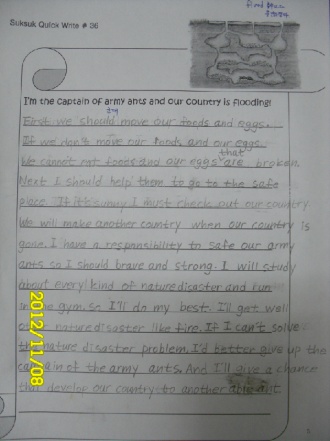 Suksuk Quick Write # 36
I'm the captain of army ants and our country is flooding!
First we should move our foods and eggs.
If we don't move our foods and our eggs.
We cannot eat foods and our eggs that are broken.
Next I should help them to go to the safe
place. If it's sunny I must check out our country
We will make another country when our country is
gone. I have a responsibility to safe our army
ants so I should brave and strong. I will study
about every kind of nature disaster and run
in the gym. so I'll do my best. I'll get well
nature disaster like fire. If I can't solve
the nature disaster problem. I'd better give up the
captain of the army ants. And I'll give a chance
that develop our country to another able ant
2012/11/08